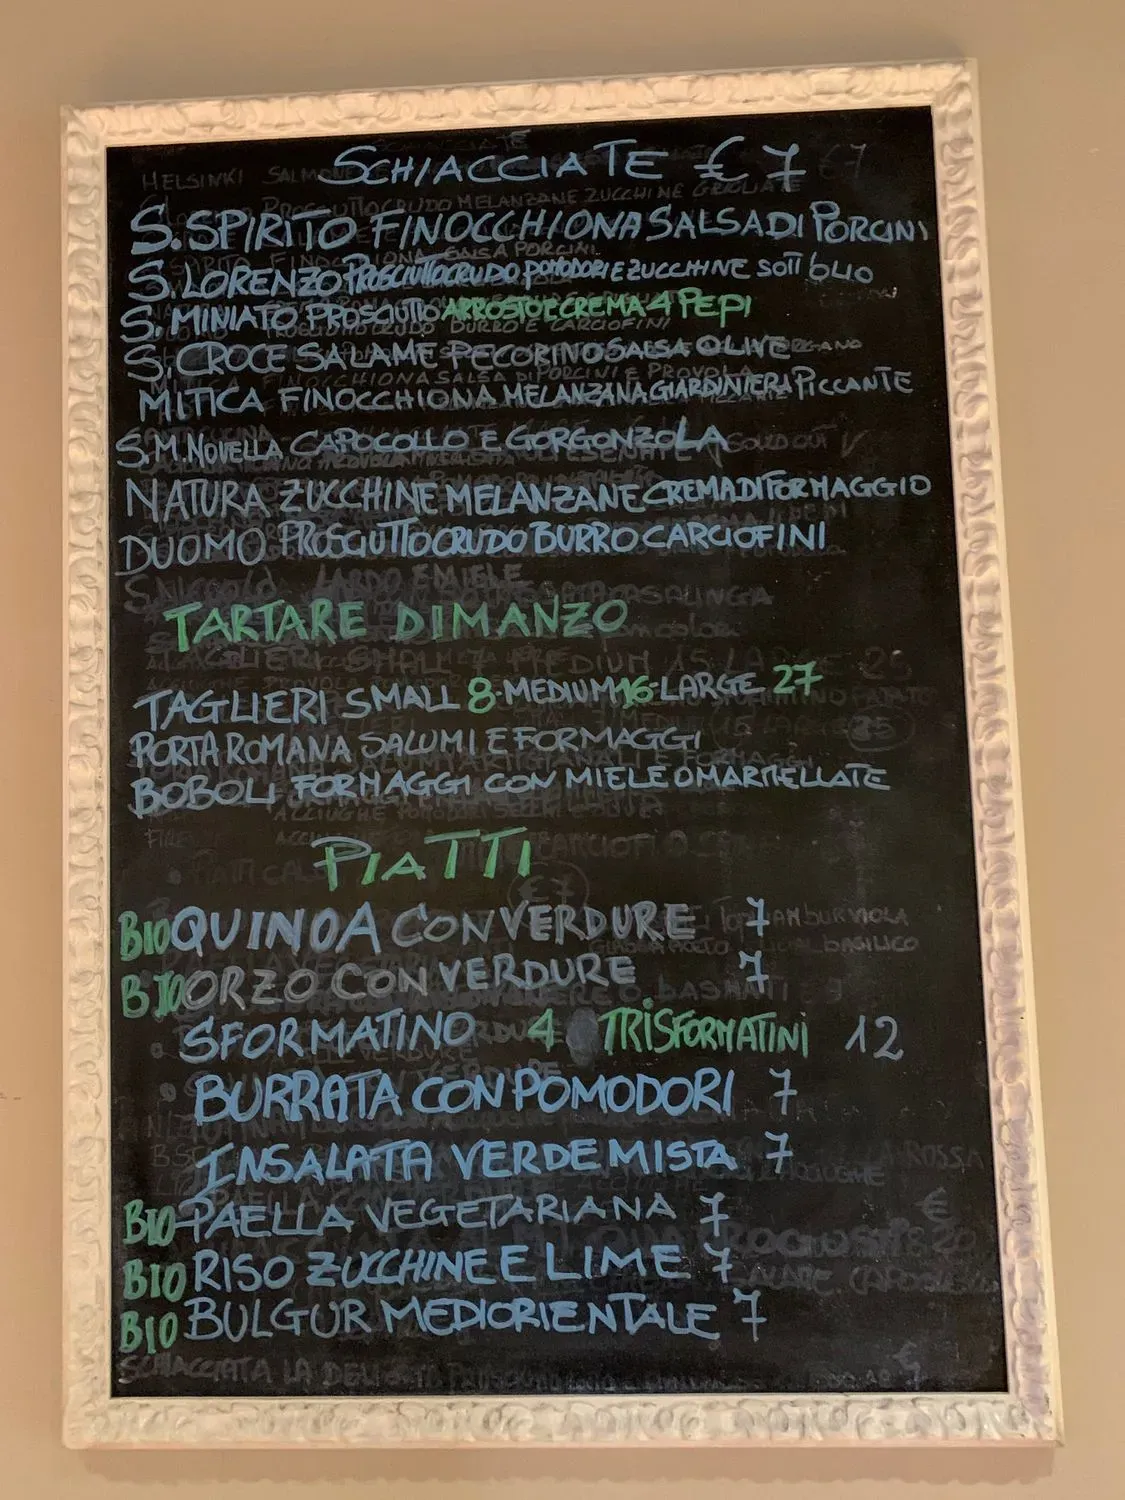 SCHIACCIATE € 7
S. SPIRITO FINOCCHIONA SALSA DI PORCINI
S. LORENZO PROSCIUTTO CRUDO POMODORI E ZUCCHINE SOTT'OLIO
S. MINIATO PROSCIUTTO ARROSTO E CREMA 4 PEPI
S. CROCE SALAME PECORINO SALSA OLIVE
MITICA FINOCCHIONA MELANZANA GIARDINIERA PICCANTE
S.M. NOVELLA CAPOCOLLO E GORGONZOLA
NATURA ZUCCHINE MELANZANE CREMA DI FORMAGGIO
DUOMO PROSCIUTTO CRUDO BURRO CARCIOFINI
TARTARE DI MANZO
TAGLIERI SMALL 8-MEDIUM 16-LARGE 27
PORTA ROMANA SALUMI E FORMAGGI
BOBOLI FORMAGGI CON MIELE O MARMELLATE
PIATTI
BIO QUINOA CON VERDURE 7
BIO ORZO CON VERDURE 7
SFORMATINO 4 TRISFORMATINI 12
BURRATA CON POMODORI 7
INSALATA VERDE MISTA 7
BIO PAELLA VEGETARIANA 7
BIO RISO ZUCCHINE E LIME 7
BIO BULGUR MEDIORIENTALE 7